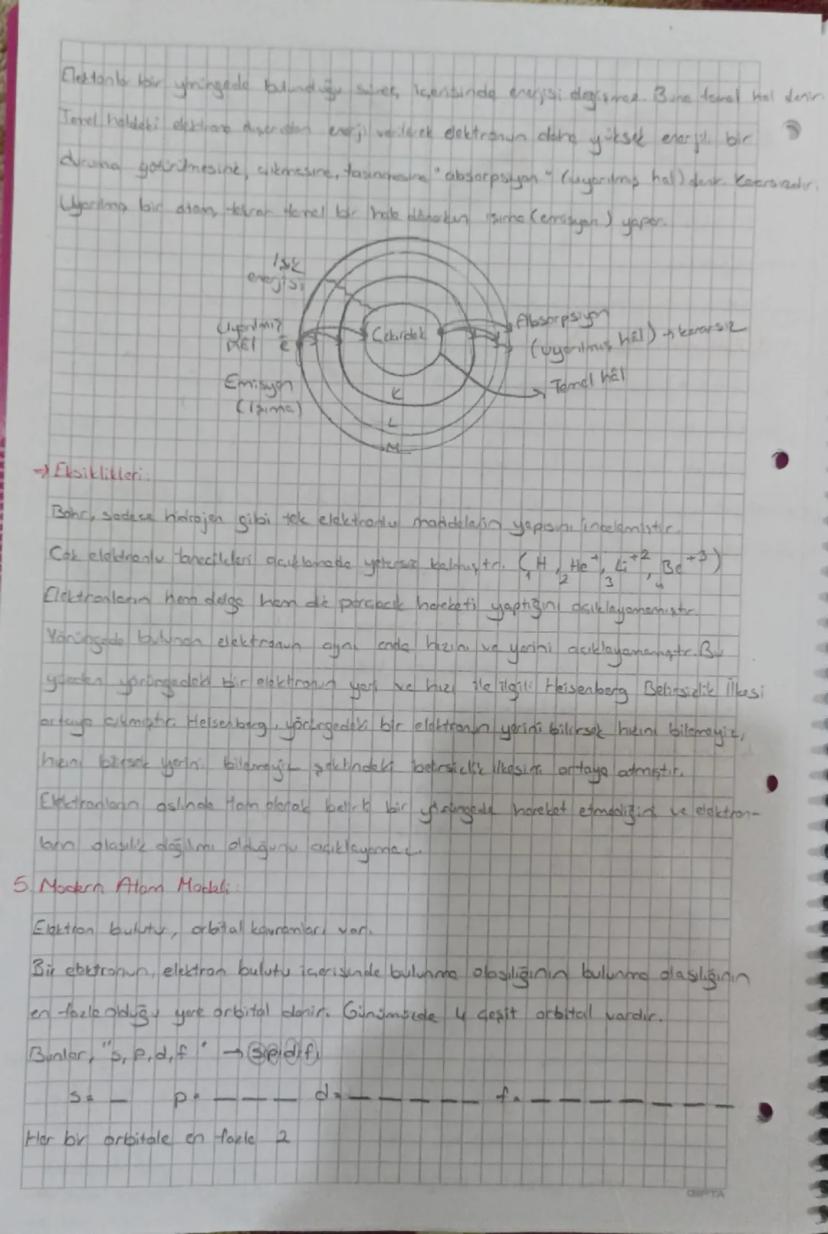 Elektronlar bir yörüngede bulunduğu sürece, içerisinde enerjisi değişmez. Buna temel hal denir.
Temel haldeki elektrona dışarıdan enerji verilerek elektronun daha yüksek enerjili bir
duruma getirilmesine, çıkmasına, taşınmasına "absorpsiyon" (uyarılmış hal) denir. Kararsızdır.
Uyarılmış bir atom, tekrar temel bir hale dönerken ışıma (emisyon) yapar.
Işık
enerjisi
Uyarılmış
HÂl
Emisyon
(Işıma)
Çekirdek
K
L
M
Absorpsiyon
(uyarılmış hâl) → kararsız
Temel hâl
→ Eksiklikleri:
Bohr, sadece hidrojen gibi tek elektronlu maddelerin yapısını incelemiştir.
Çok elektronlu tanecikleri açıklamada yetersiz kalmıştır. (₁H, ₂He⁺, ₃Li⁺², ₄Be⁺³)
Elektronların hem dalga hem de parçacık hareketi yaptığını açıklayamamıştır.
Yörüngede bulunan elektronun aynı anda hızını ve yerini açıklayamamıştır. Bu
yüzden yörüngedeki bir elektronun yeri ve hızı ile ilgili Heisenberg Belirsizlik İlkesi
ortaya çıkmıştır. Heisenberg, yörüngedeki bir elektronun yerini bilirsek hızını bilemeyiz,
hızını bilirsek yerini bilemeyiz şeklindeki belirsizlik ilkesini ortaya atmıştır.
Elektronların aslında tam olarak belirli bir yörüngede hareket etmediğini ve elektron-
ların olasılık dağılımı olduğunu açıklayamaz.
5. Modern Atom Modeli:
Elektron bulutu, orbital kavramları var.
Bir elektronun, elektron bulutu içerisinde bulunma olasılığının bulunma olasılığının
en fazla olduğu yere orbital denir. Günümüzde 4 çeşit orbital vardır.
Bunlar, "s, p, d, f" → s p d f
s= _ p= _ _ _ d= _ _ _ _ _ f= _ _ _ _ _ _ _
Her bir orbitale en fazla 2